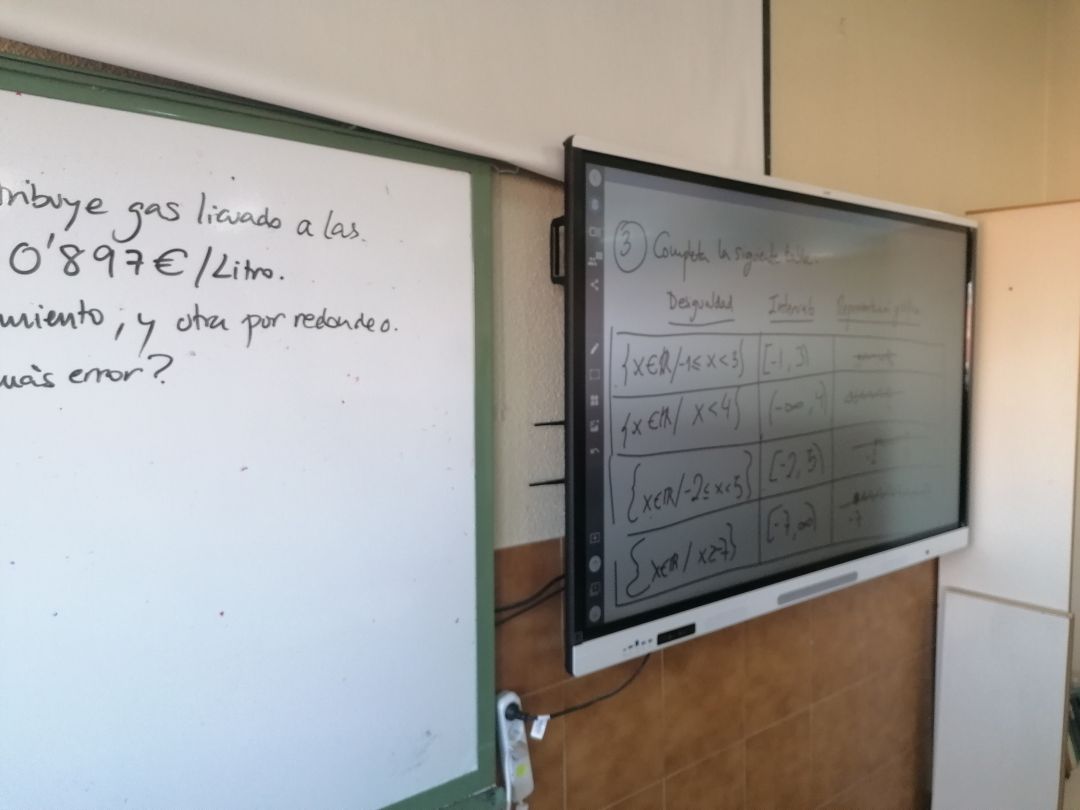 tribuye gas licuado a las
0'897€/Litro.
miento, y otra por redondeo.
más error?
③ Completa la siguiente tabla.
Desigualdad Intervalo Representación gráfica
{x∈ℝ/-1≤x<3} [-1, 3)
{x∈ℝ/ x<4} (-∞, 4)
{x∈ℝ/-2≤x<5} [-2, 5)
{x∈ℝ/ x≥-7} [-7, ∞)
-7